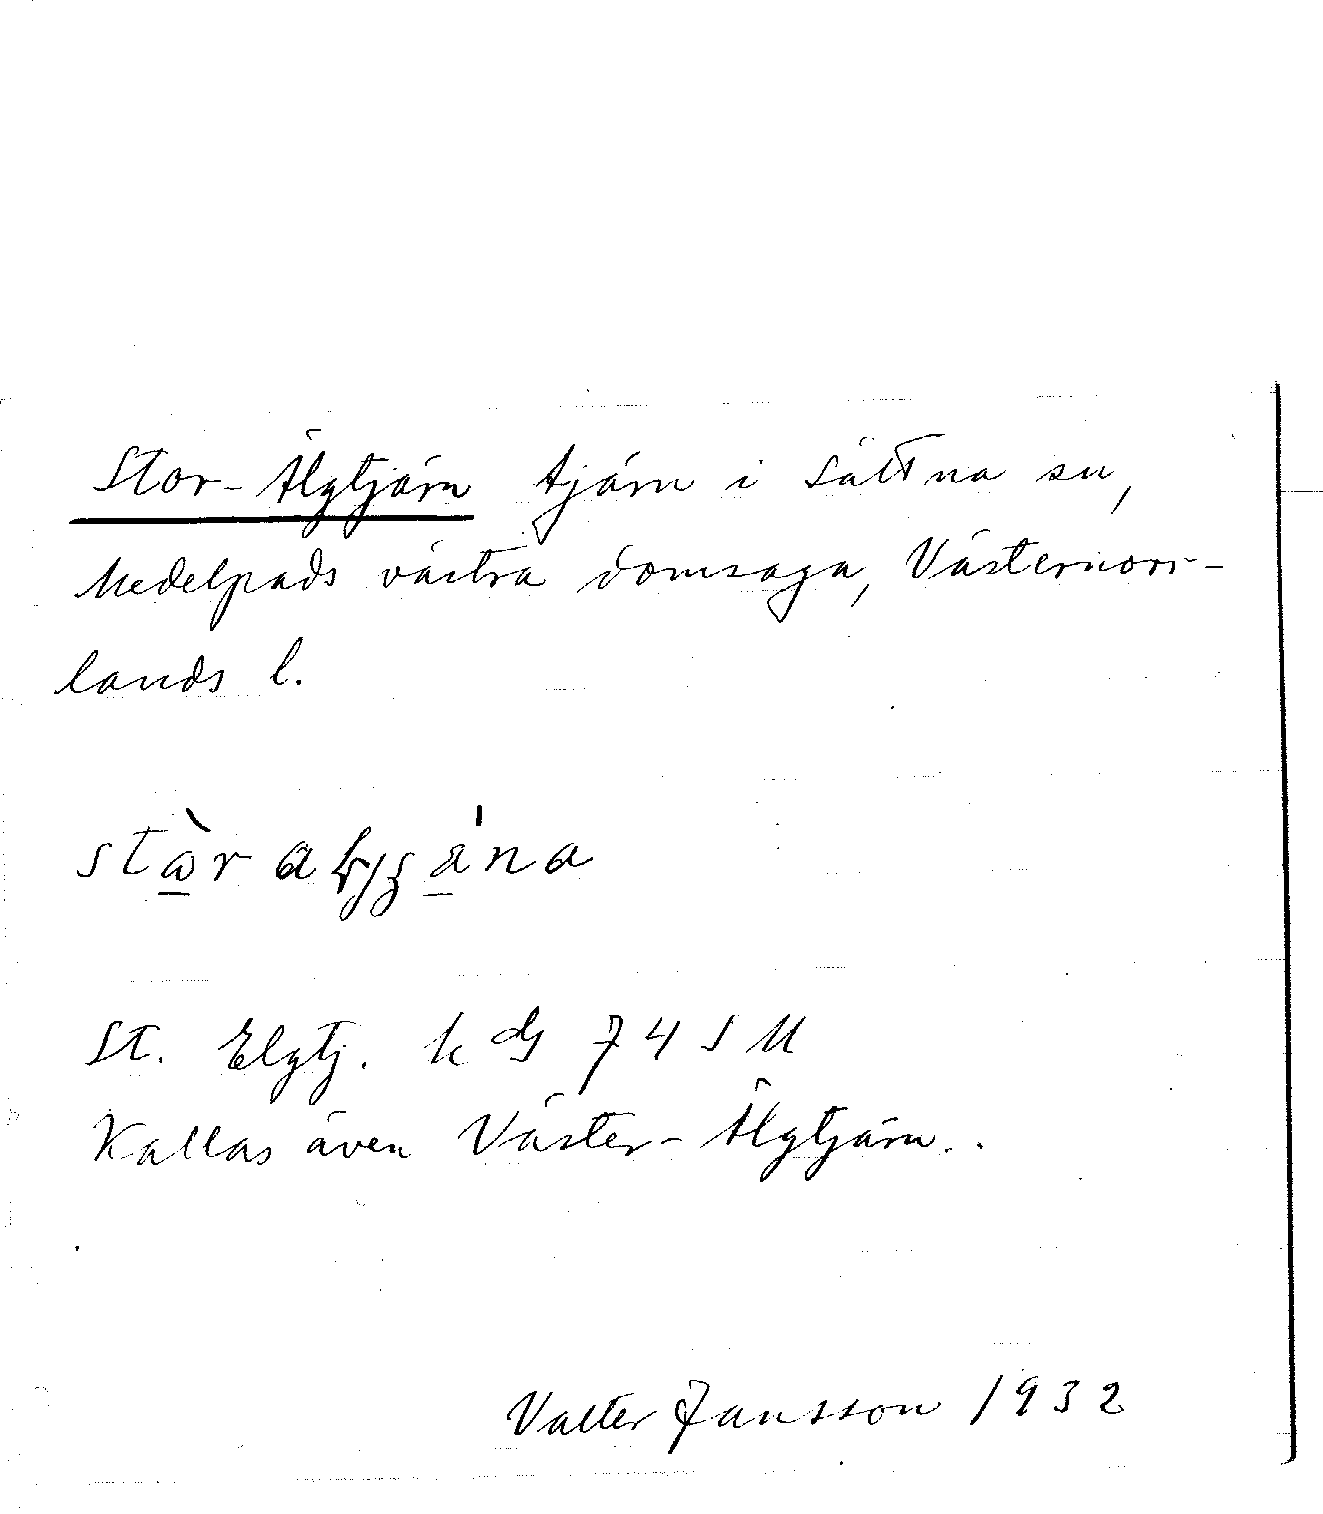 Stor-Älgtjärn tjärn i Sättna sn,
Medelpads västra domsaga, Västernorr-
lands l.
St. Elgtj. k dg 74 S M
Kallas även Väster-Älgtjärn..
Valter Jansson 1932